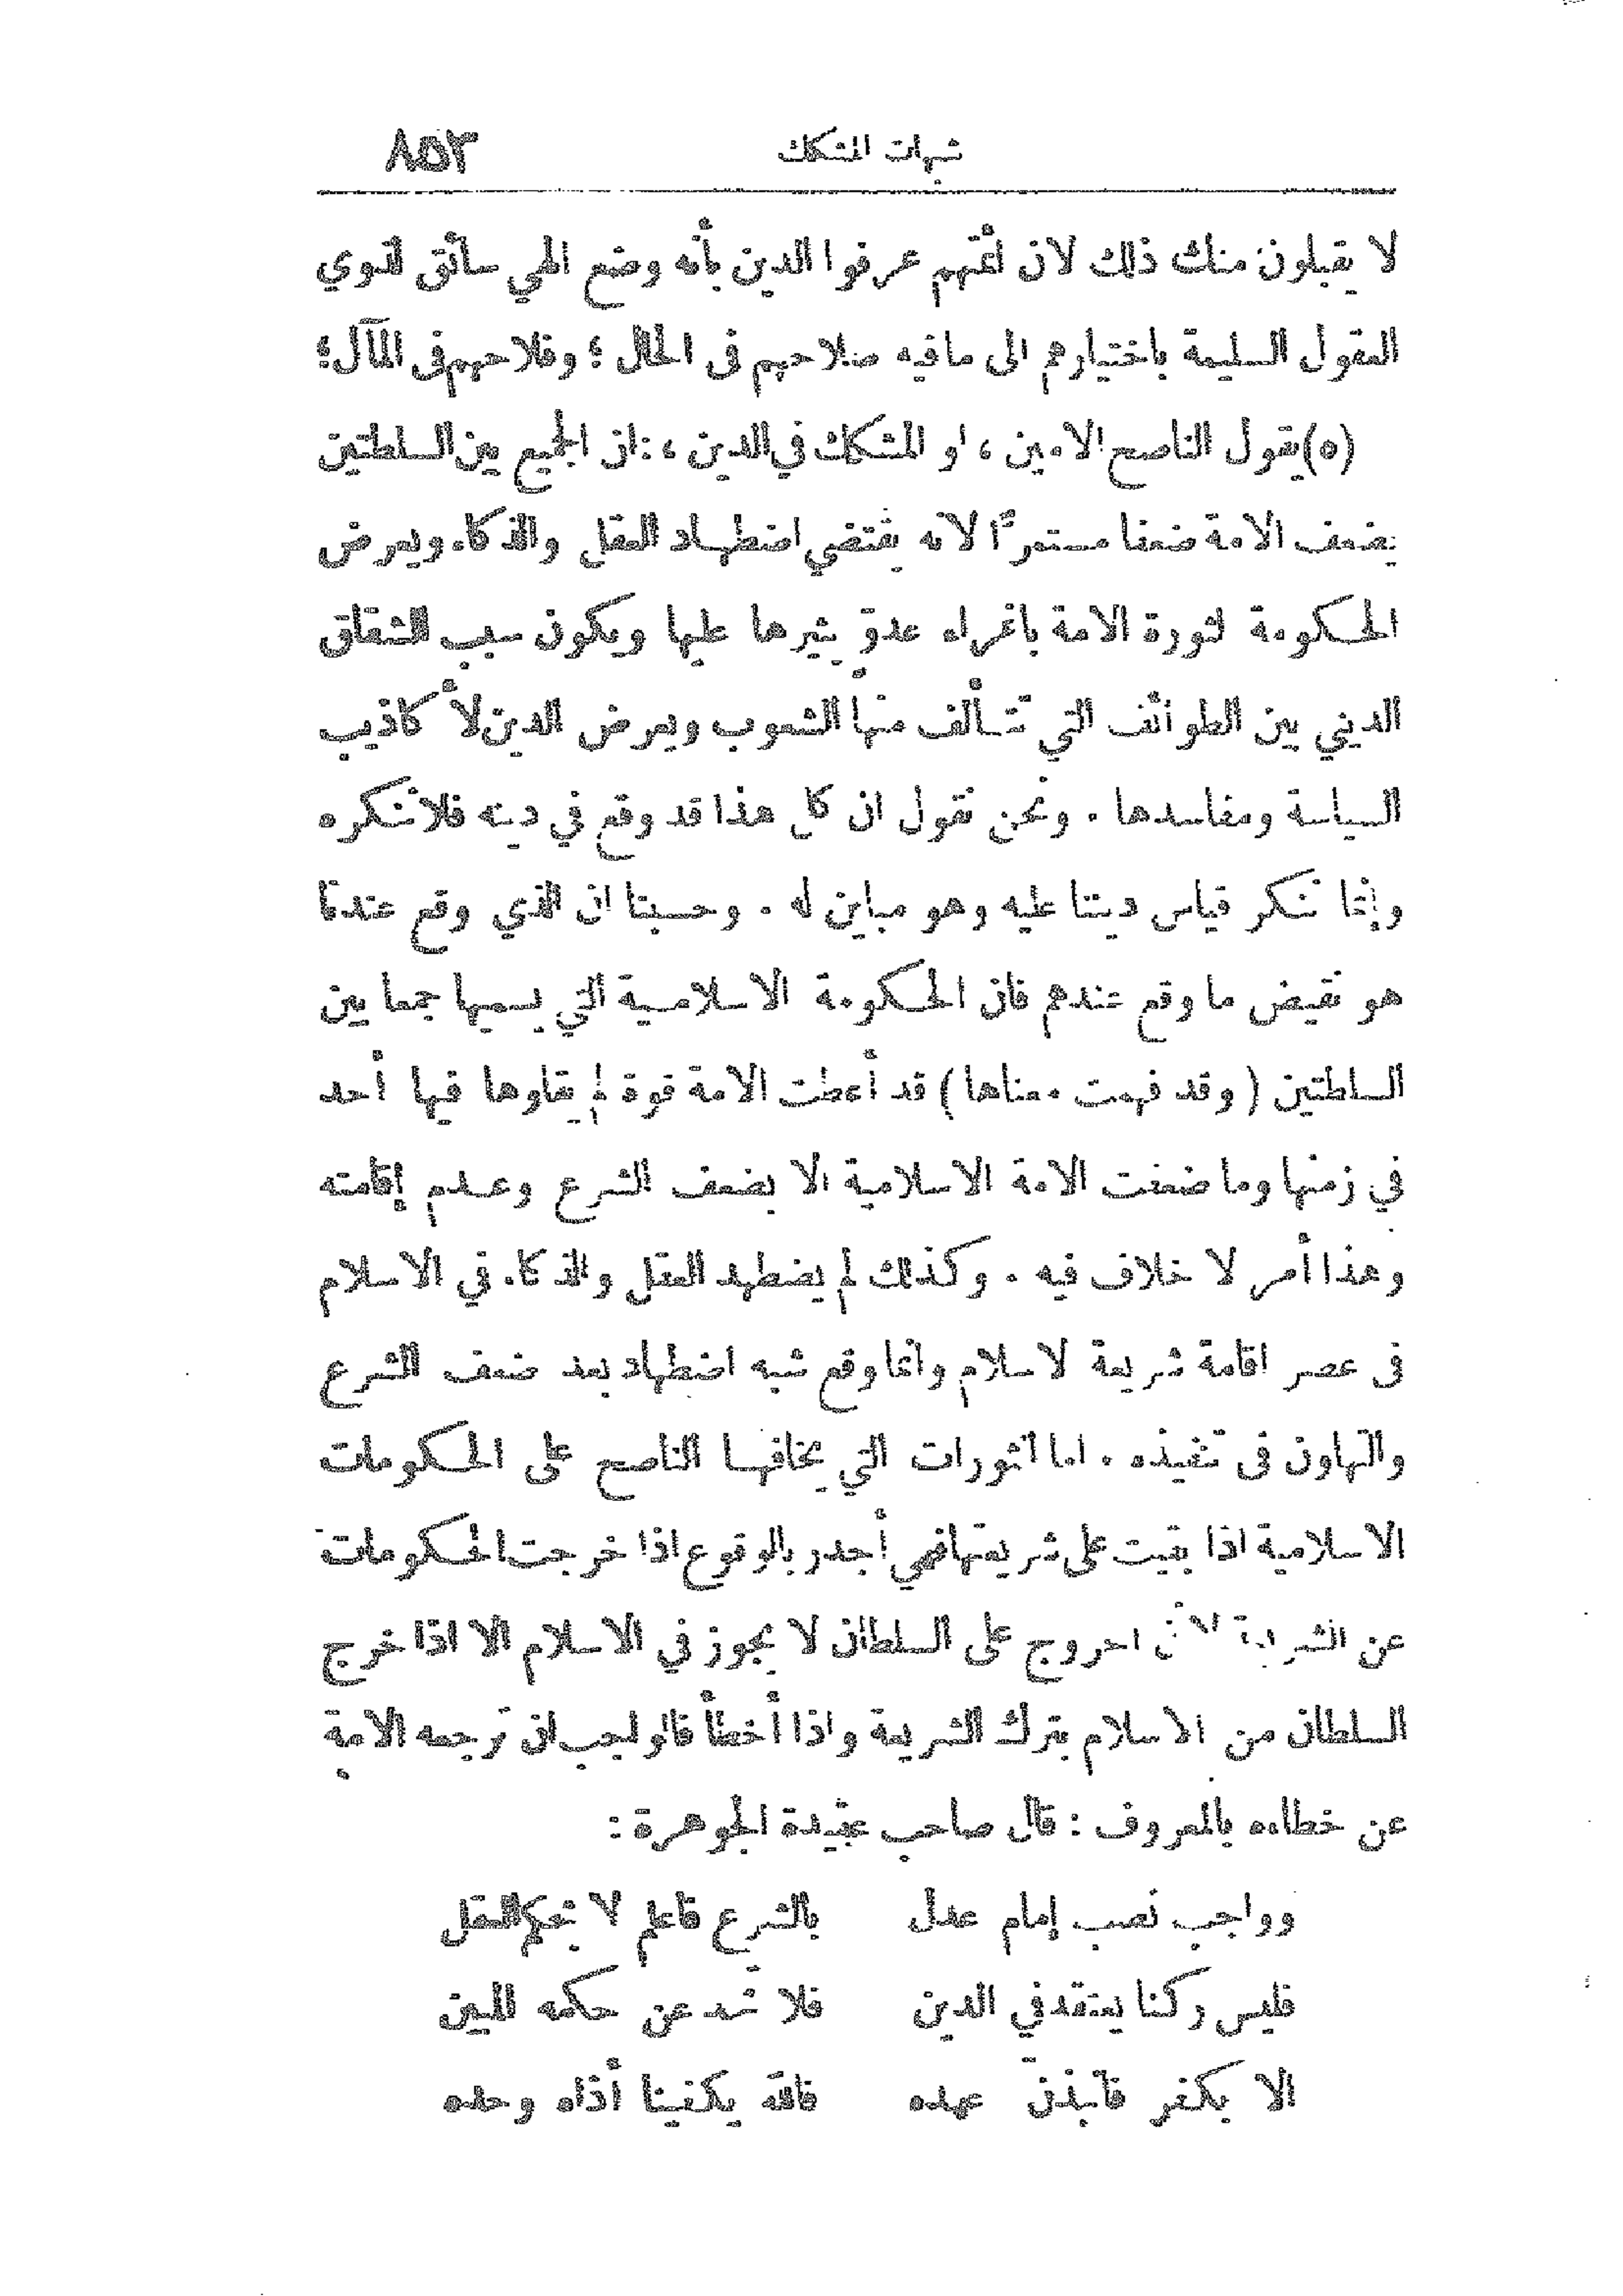 شبهات المشكك ٨٥٣
لا يقبلون منك ذلك لان أئمتهم عرفوا الدين بأنه وضع الهي سائق لذوي
العقول السليمة باختيارهم الى ما فيه صلاحهم فى الحال ؛ وفلاحهم فى المآل ؛
(٥) يقول الناصح الامين ، او المشكك في الدين ، : ان الجمع بين السلطتين
يضعف الامة ضعفا مستمرًّا لانه يقتضي اضطهاد العقل والذكاء ويعرض
الحكومة لثورة الامة باغراء عدوّ يثيرها عليها ويكون سبب الشقاق
الديني بين الطوائف التي تتألف منها الشعوب ويعرض الدين لأكاذيب
السياسة ومفاسدها . ونحن نقول ان كل هذا قد وقع في دينه فلا ننكره
وإنما ننكر قياس ديننا عليه وهو مباين له . وحسبنا ان الذي وقع عندنا
هو نقيض ما وقع عندهم فان الحكومة الاسلامية التي يسميها جمعا بين
السلطتين ( وقد فهمت معناها ) قد أعطت الامة قوة لم يقاوها فيها أحد
في زمنها وما ضعفت الامة الاسلامية الا بضعف الشرع وعدم إقامته
وهذا أمر لا خلاف فيه . وكذلك لم يضطهد العقل والذكاء في الاسلام
فى عصر اقامة شريعة لاسلام وانما وقع شبه اضطهاد بعد ضعف الشرع
والتهاون فى تنفيذه . اما الثورات التي يخافها الناصح على الحكومات
الاسلامية اذا بقيت على شريعتها فهي أجدر بالوقوع اذا خرجت الحكومات
عن الشريعة لأن الخروج على السلطان لا يجوز في الاسلام الا اذا خرج
السلطان من الاسلام بترك الشريعة واذا أخطأ فالواجب ان ترجعه الامة
عن خطاءه بالمعروف : قال صاحب عقيدة الجوهرة :
وواجب نصب إمام عدل بالشرع فاعلم لا بحكم العقل
فليس ركنا يعتقد في الدين فلا تزد عن حكمه المبين
الا بكفر فانبذنّ عهده فالله يكفينا أذاه وحده